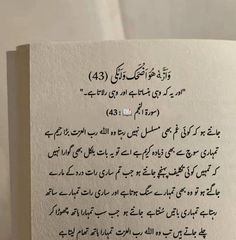 وَاَنَّهٗ هُوَ اَضْحَكَ وَاَبْكٰی (43)
"اور یہ کہ وہی ہنساتا ہے اور وہی رلاتا ہے۔"
(سورۃ النجم :43)
جانتے ہو کہ کوئی غم بھی مسلسل نہیں رہتا وہ اللہ رب العزت بڑا رحیم ہے
تمہاری سوچ سے بھی ذیادہ کریم ہے اسے تو یہ بات بلکل بھی گوارا نہیں
کہ تمہیں کوئی تکلیف پہنچے جانتے ہو جب تم ساری رات درد کے مارے
جاگتے ہو تو وہ بھی تمہارے سنگ ہوتا ہے اور ساری رات تمہارے ساتھ
رہتا ہے تمہاری باتیں سنتا ہے جانتے ہو جب سب تمہارا ہاتھ چھوڑ کر
چلے جاتے ہیں تب وہ اللہ رب العزت تمہارا ہاتھ تھام لیتا ہے